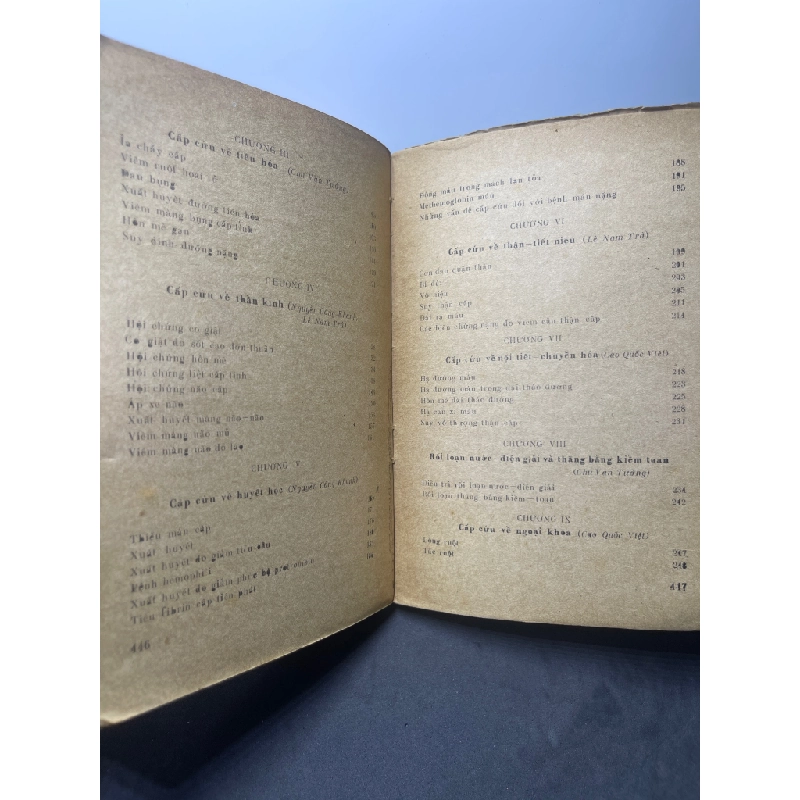 CHƯƠNG III
Cấp cứu về tiêu hóa (Cao Văn
Ỉa chảy cấp
Viêm ruột hoại
Đau bụng
Xuất huyết đường tiêu hóa
Viêm màng bụng cấp tính
Hôn mê gan
Suy dinh dưỡng nặng
CHƯƠNG IV
Cấp cứu về thần kinh (Nguyễn Công Khanh
Lê Nam Trà)
Hội chứng co giật
Co giật do sốt cao đơn thuần
Hội chứng hôn mê
Hội chứng liệt cấp tính
Hội chứng não cấp
Áp xe não
Xuất huyết màng não-não
Viêm màng não mủ
Viêm màng não do lao
CHƯƠNG V
Cấp cứu về huyết học (Nguyễn Công Khanh)
Thiếu máu cấp
Xuất huyết
Xuất huyết do giảm tiểu cầu
Bệnh hemophili
Xuất huyết do giảm phức bộ
Tiêu fibrin cấp tiên phát
446
Đông máu trong mạch lan tỏa 188
Methemoglobin máu 191
Những vấn đề cấp cứu đối với bệnh máu nặng 195
CHƯƠNG VI
Cấp cứu về thận-tiết niệu (Lê Nam Trà)
Cơn đau quặn thận 199
Bí đái 201
Vô niệu 203
Suy thận cấp 205
Đái ra máu 211
Các biến chứng nặng do viêm cầu thận cấp 214
CHƯƠNG VII
Cấp cứu về nội tiết-chuyển hóa (Cao Quốc Việt)
Hạ đường máu 218
Hạ đường máu trong đái tháo đường 223
Hôn mê đái tháo đường 225
Hạ can xi máu 228
Suy vỏ thượng thận cấp 231
CHƯƠNG VIII
Rối loạn nước-điện giải và thăng bằng kiềm toan
Điều trị rối loạn nước-điện giải 234
Rối loạn thăng bằng kiềm-toan 242
CHƯƠNG IX
Cấp cứu về ngoại khoa (Cao Quốc Việt)
Lồng ruột 247
Tắc ruột 248
447